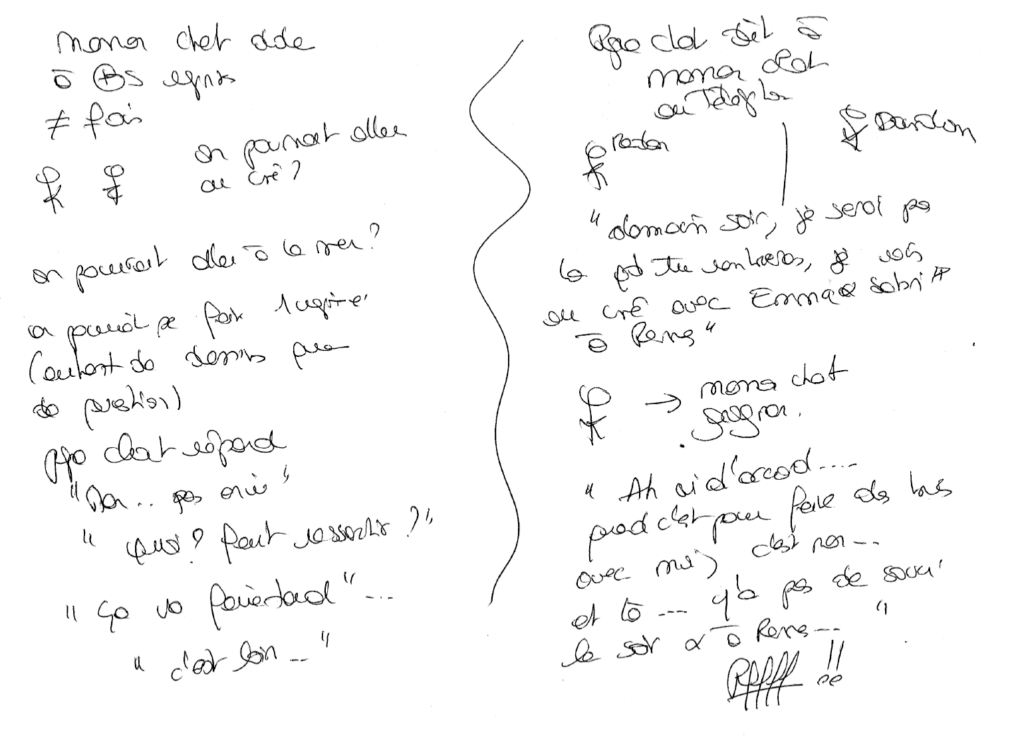 maman chat
à
≠ fois
on pourrait aller
au ciné ?
on pourrait aller à la mer ?
on pourrait se faire
(autant de dessins que
de question)
papa chat répond
" pas envie "
" quoi ? Faut ressortir ? "
" ça va faire tard " ...
" c'est loin ... "
Papa chat dit à
maman chat
au téléphone
pardon
" demain soir, je serai pas
là qd tu rentreras, je vais
au ciné avec Emma & Sabri
à Rens "
→ maman chat
" Ah oui d'accord ....
quand c'est pour faire des trucs
avec moi, c'est non ...
et là ... y'a pas de souci
le soir à Rens ... "
Pffff !!